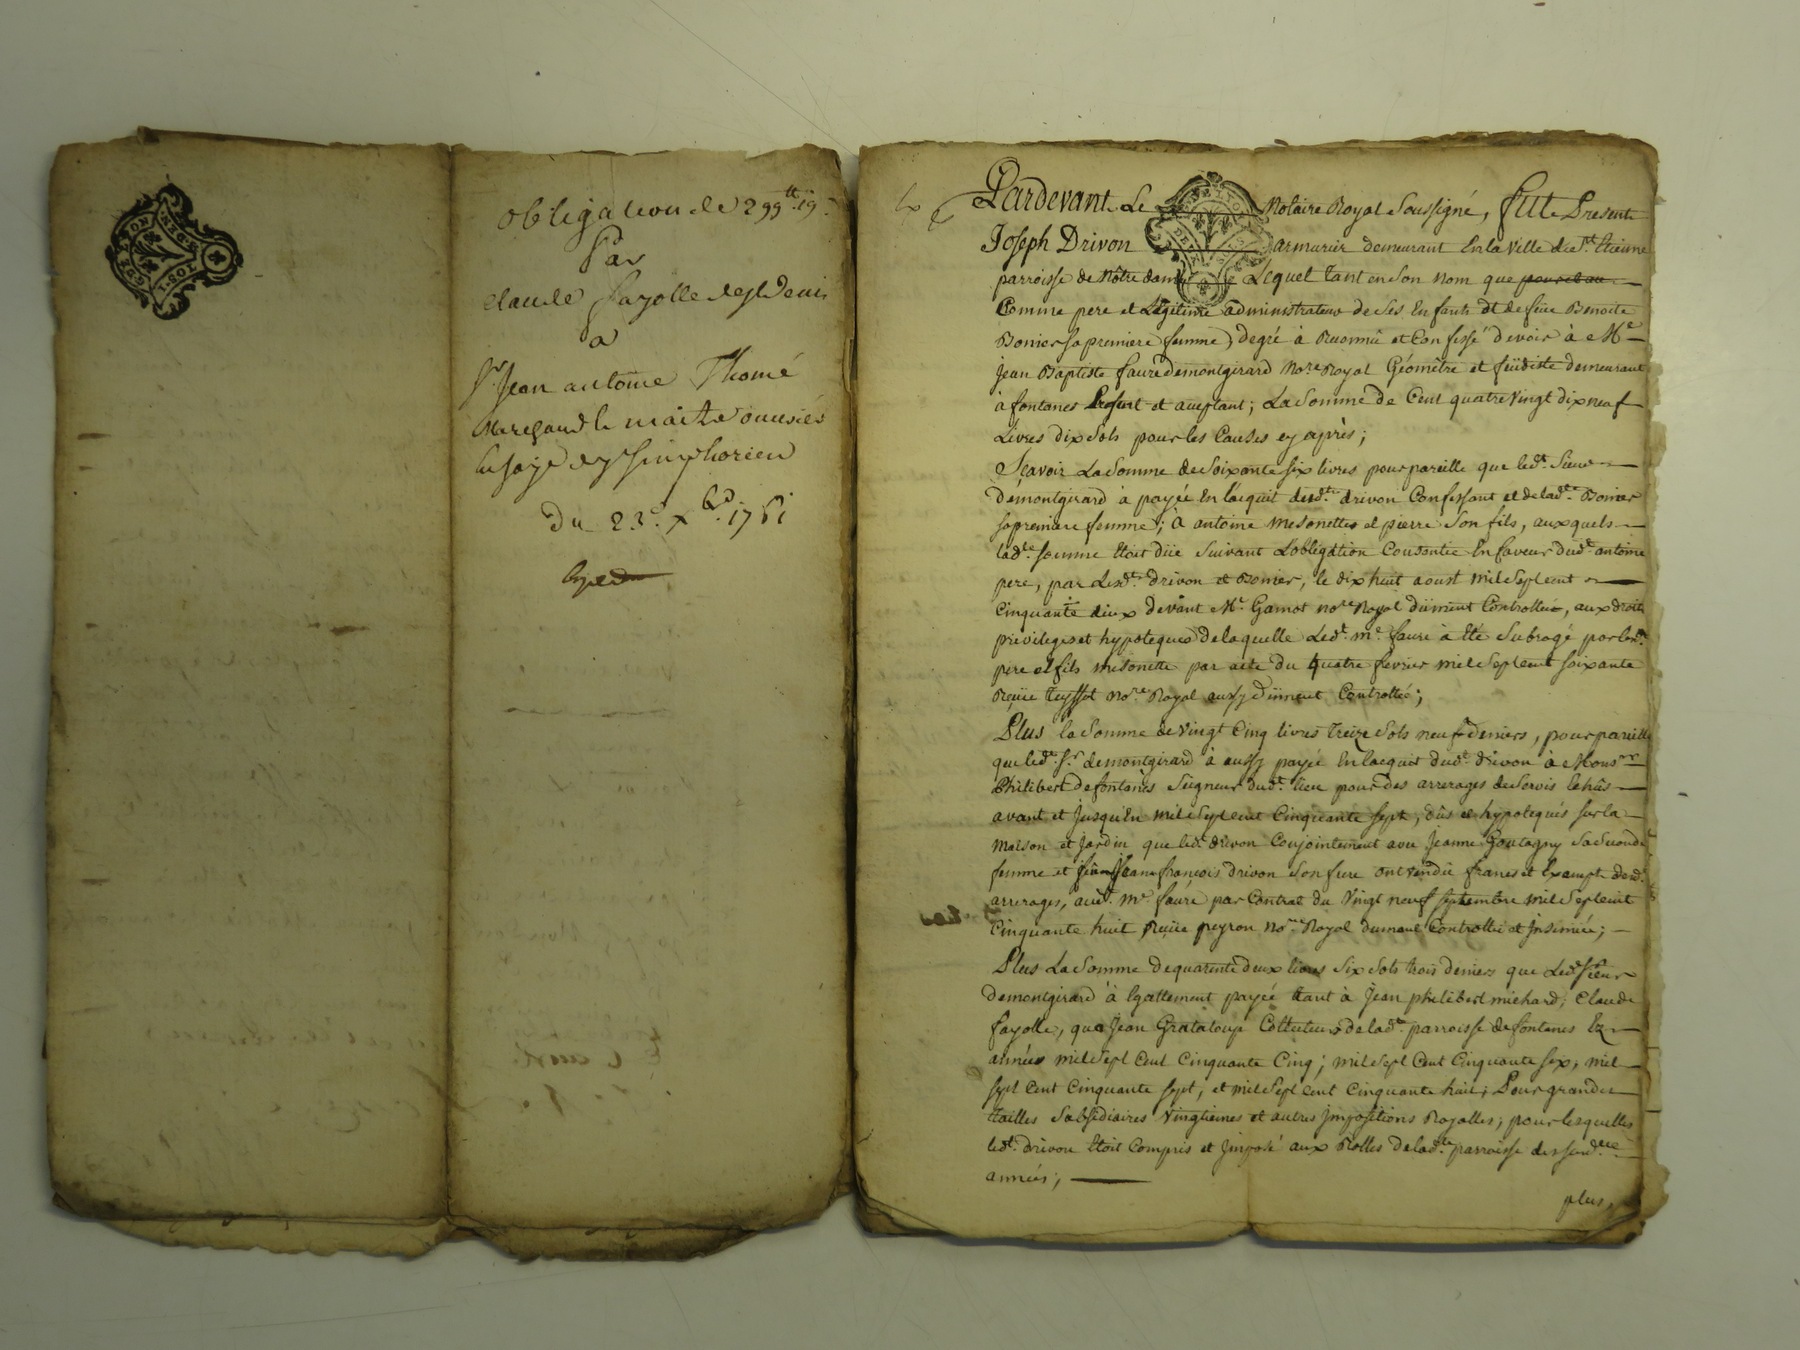 obligation de 299tt. 19s.
Par
claude fayolle de St Denis
a
Sr. Jean antoine Thomé
Marchand
St Simphorien
Du 23e. xbre. 1761
Pardevant Le Notaire Royal Soussigné, fut Present
Joseph Drivon armurier demeurant En la Ville de St. Etienne
parroisse de Nôtre dame Lequel tant en Son Nom que
Comme pere et Légitime administrateur de Ses Enfants et de feüe Benoite
Bonier sa premiere femme) degré à Reconnû et Confessé devoir à Me
Jean Baptiste faure demontgirard Nore Royal Géomètre et feüdiste demeurant
à fontanes Present et acceptant; La Somme de Cent quatre Vingt dix neuf
Livres dix Sols pour les Causes cy après;
Sçavoir La Somme de Soixante Six livres pour pareille que ledt. Sieur
demontgirard à payée En l'acquit dudt. drivon Confessant et de ladte. Bonier
sa premiere femme; à antoine Mesonette et pierre Son fils, auxquels
ladte. somme Etoit düe Suivant L'obligation Consentie En faveur dudt. antoine
pere, par Lesdt. drivon et Bonier, le dix huit aoust mil Sept cent
Cinquante deux devant Me. Gamot nore Royal düment Controllée, aux droits
privileges et hypoteques de laquelle Ledt. me. faure à Eté Subrogé par lesdt.
pere et fils mesonette par acte du quatre fevrier mil Sept cent soixante
Reçüe teyssot Nore Royal aussy düment Controllée;
Plus la Somme de Vingt Cinq livres treize Sols neuf deniers, pour pareille
que ledt. Sr. demontgirard à aussy payée En lacquit dudt. drivon à Monsr
Philibert de fontanès Seigneur dudt. lieu pour des arrerages de Servis Echûs
avant et Jusqu'En mil Sept cent Cinquante Sept, dûs et hypotequés sur la
Maison et Jardin que ledt. drivon Conjointement avec Jeanne Goutagny Sa Seconde
femme et Jean françois drivon Son frere ont vendü francs et Exempts desdt.
arrerages, audt. Me faure par Contrat du Vingt neuf septembre mil Sept cent
Cinquante huit Reçüe peyron Nore Royal dument Controllé et Insinüé;
Plus La Somme de quarente deux livres Six Sols trois deniers que Ledt Sieur
demontgirard à Egallement payée tant à Jean philibert michard, Claude
fayolle, qu'a Jean Grataloup Collecteurs de ladte. parroisse de fontanes Ez
années mil Sept Cent Cinquante Cinq; mil Sept Cent Cinquante Six, mil
Sept Cent Cinquante Sept, et mil Sept Cent Cinquante huit; Pour grandes
tailles Subsidiaires Vingtiemes et autres Impositions Royalles, pour lesquelles
ledt. drivon Etoit Compris et Imposé aux Rolles de ladte. parroisse
années;
plus,